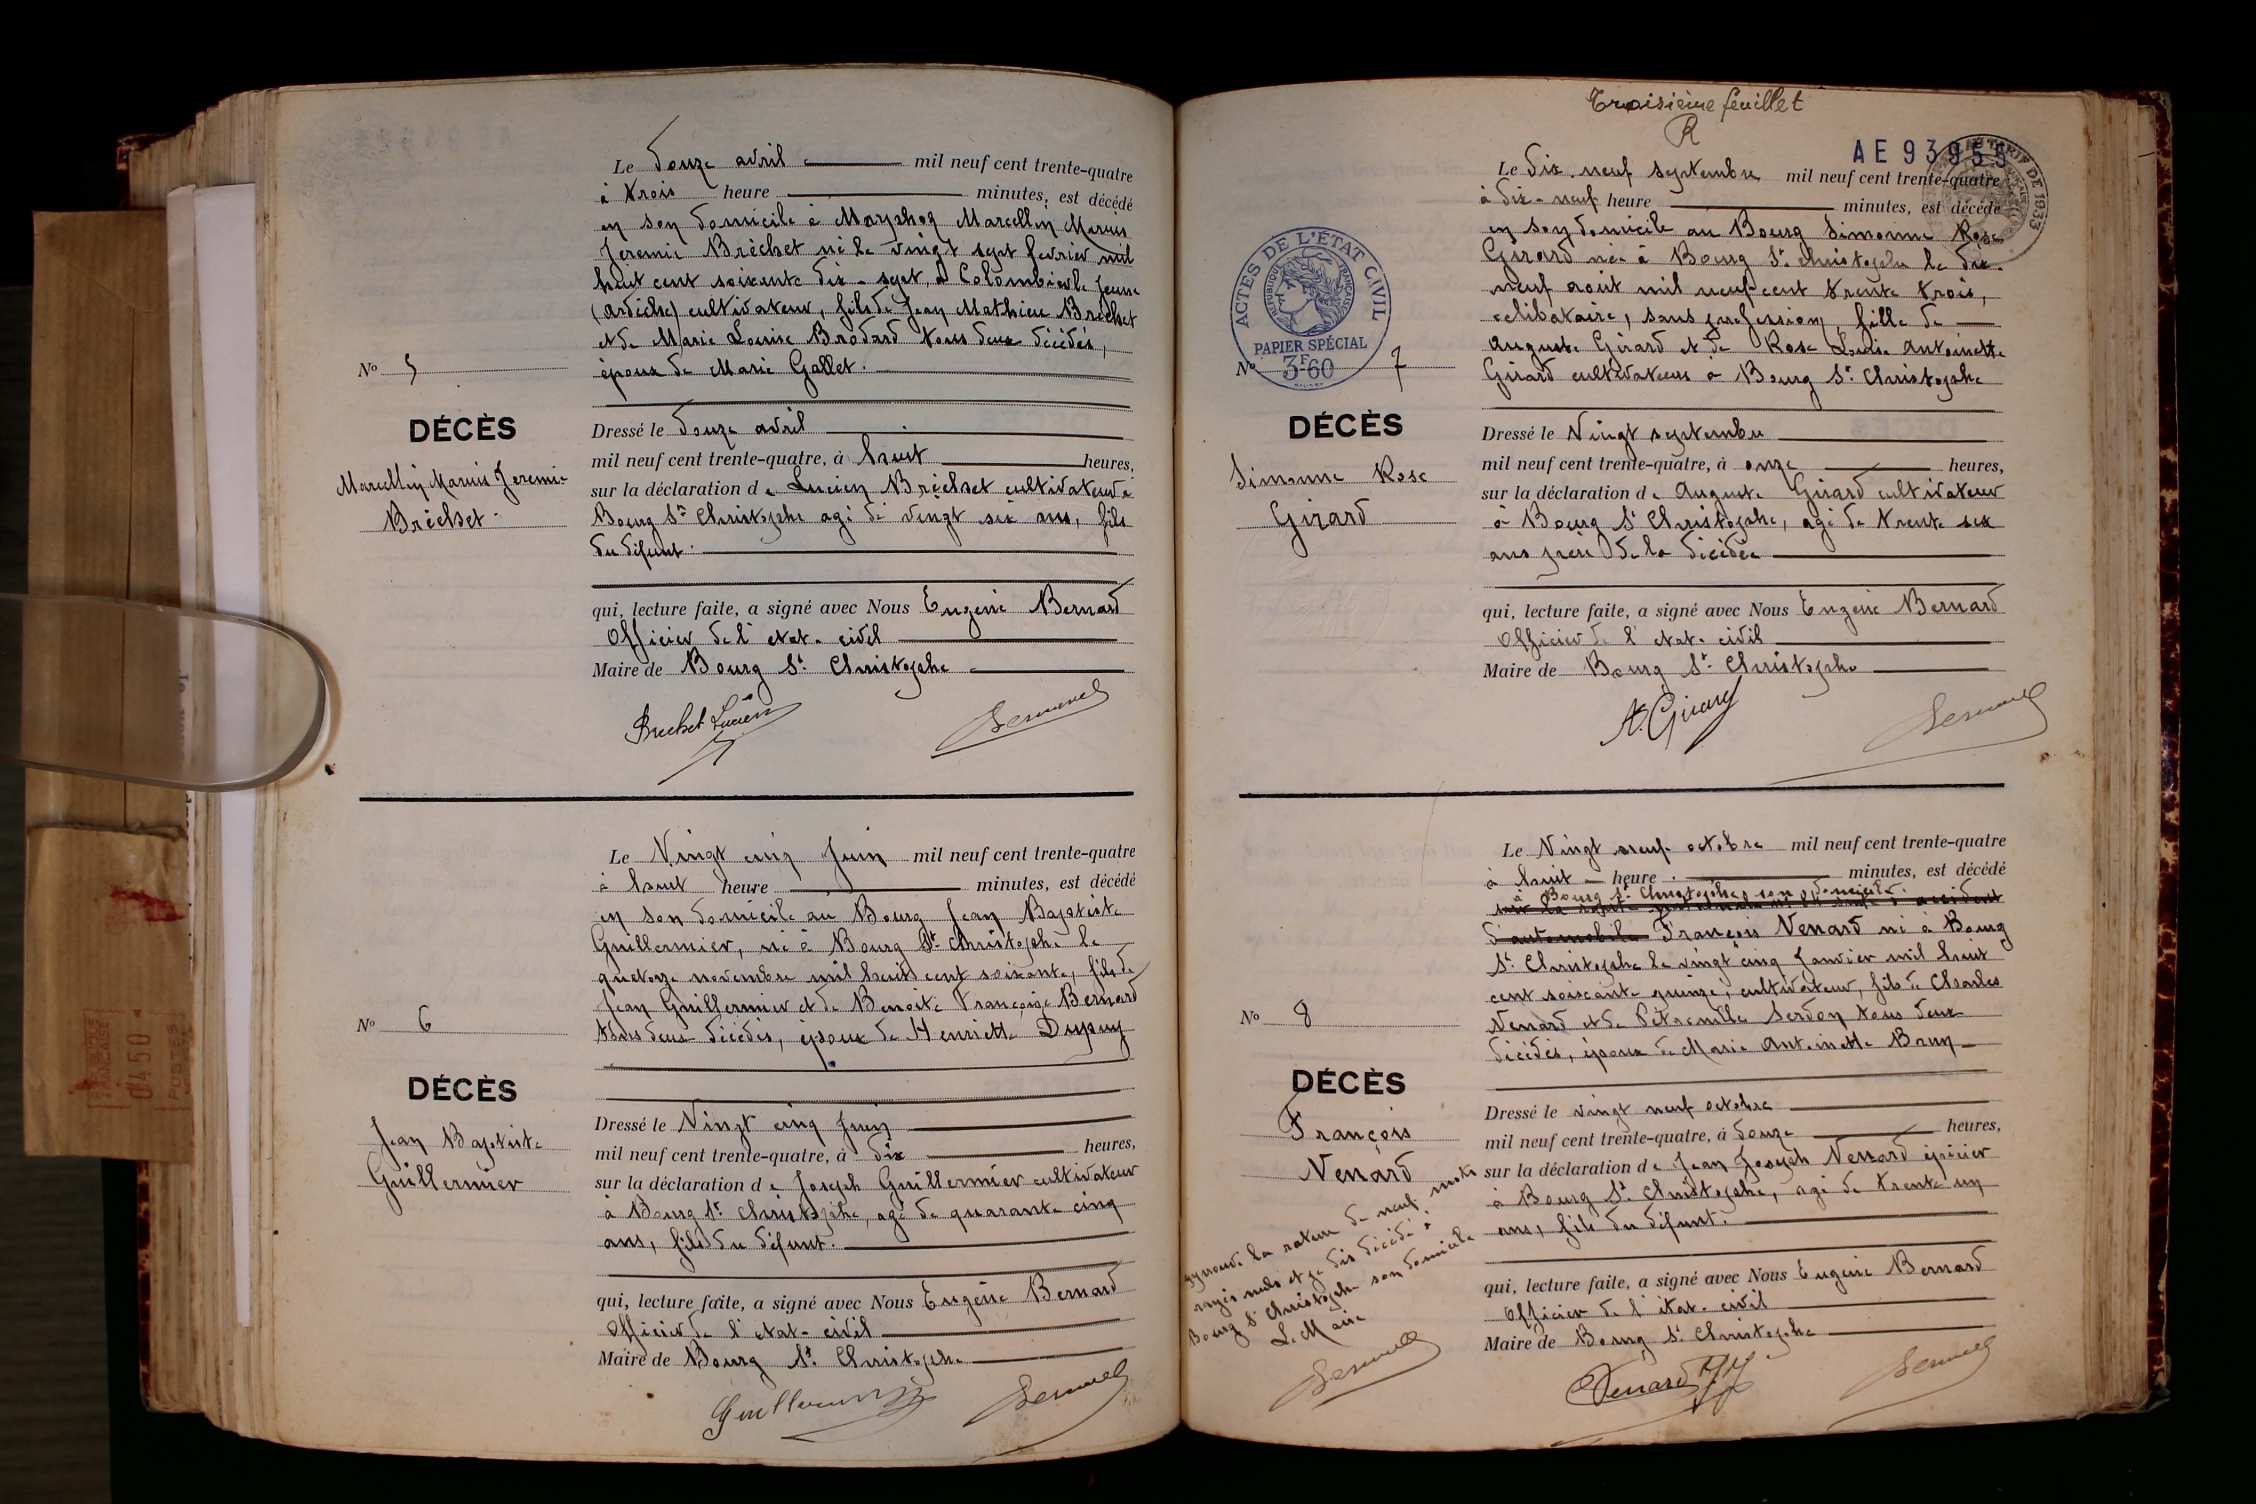 Le Douze avril mil neuf cent trente-quatre
à trois heure minutes, est décédé
en son domicile à Marcellin Marius
Jeremie Bréchet né le vingt sept fevrier mil
huit cent soixante dix-sept, à Colombier le Jeune
(ardèche) cultivateur, fils de Jean Mathieu Bréchet
et de Marie Louise Brodard tous deux décédés,
époux de Marie Gallet.
No 5
DÉCÈS
Marcellin Marius Jeremie
Bréchet.
Dressé le Douze avril
mil neuf cent trente-quatre, à huit heures,
sur la déclaration de Lucien Bréchet cultivateur à
Bourg St Christophe agé de vingt six ans, fils
du défunt.
qui, lecture faite, a signé avec Nous Eugène Bernard
Officier de l'etat-civil
Maire de Bourg St. Christophe
Brechet Lucien
Bernard
Le Vingt cinq Juin mil neuf cent trente-quatre
à huit heure minutes, est décédé
en son domicile au Bourg Jean Baptiste
Guillermier, né à Bourg St. Christophe le
quatorze novembre mil huit cent soixante, fils de
Jean Guillermier et de Benoite Françoise Bernard
tous deux décédés, époux de Henriette Dupuy
No 6
DÉCÈS
Jean Baptiste
Guillermier
Dressé le Vingt cinq Juin
mil neuf cent trente-quatre, à dix heures,
sur la déclaration de Joseph Guillermier cultivateur
à Bourg St. Christophe, agé de quarante cinq
ans, fils du défunt.
qui, lecture faite, a signé avec Nous Eugène Bernard
Officier de l'etat-civil
Maire de Bourg St. Christophe
Guillermier
Bernard
Troisième feuillet
R
AE 93955
TARIF DE 1933
Le Dix-neuf septembre mil neuf cent trente-quatre
à dix-neuf heure minutes, est décédé
en son domicile au Bourg Simonne Rose
Girard née à Bourg St. Christophe le dix-
neuf août mil neuf cent trente trois,
celibataire, sans profession, fille de
Auguste Girard et de Rose Louise Antoinette
Girard cultivateurs à Bourg St. Christophe
ACTES DE L'ÉTAT CIVIL
RÉPUBLIQUE FRANÇAISE
PAPIER SPÉCIAL
3F60
No 7
DÉCÈS
Simonne Rose
Girard
Dressé le Vingt septembre
mil neuf cent trente-quatre, à onze heures,
sur la déclaration de Auguste Girard cultivateur
à Bourg St Christophe, agé de trente six
ans père de la décédée
qui, lecture faite, a signé avec Nous Eugène Bernard
Officier de l'etat-civil
Maire de Bourg St. Christophe
A. Girard
Bernard
Le Vingt neuf octobre mil neuf cent trente-quatre
à huit heure minutes, est décédé
à Bourg St. Christophe son domicile
accident
d'automobile François Venard né à Bourg
St. Christophe le vingt cinq Janvier mil huit
cent soixante quinze, cultivateur, fils de Charles
Venard et de Pétronille Serdon tous deux
décédés, époux de Marie Antoinette Brun
No 8
DÉCÈS
François
Venard
Dressé le vingt neuf octobre
mil neuf cent trente-quatre, à douze heures,
sur la déclaration de Jean Joseph Venard épicier
à Bourg St. Christophe, agé de trente un
ans, fils du défunt.
approuvé la rature de neuf mots
rayés nuls et je dis décédé à
Bourg St Christophe son domicile
Le Maire
Bernard
qui, lecture faite, a signé avec Nous Eugène Bernard
Officier de l'état-civil
Maire de Bourg St. Christophe
Venard
Bernard
0450
POSTES